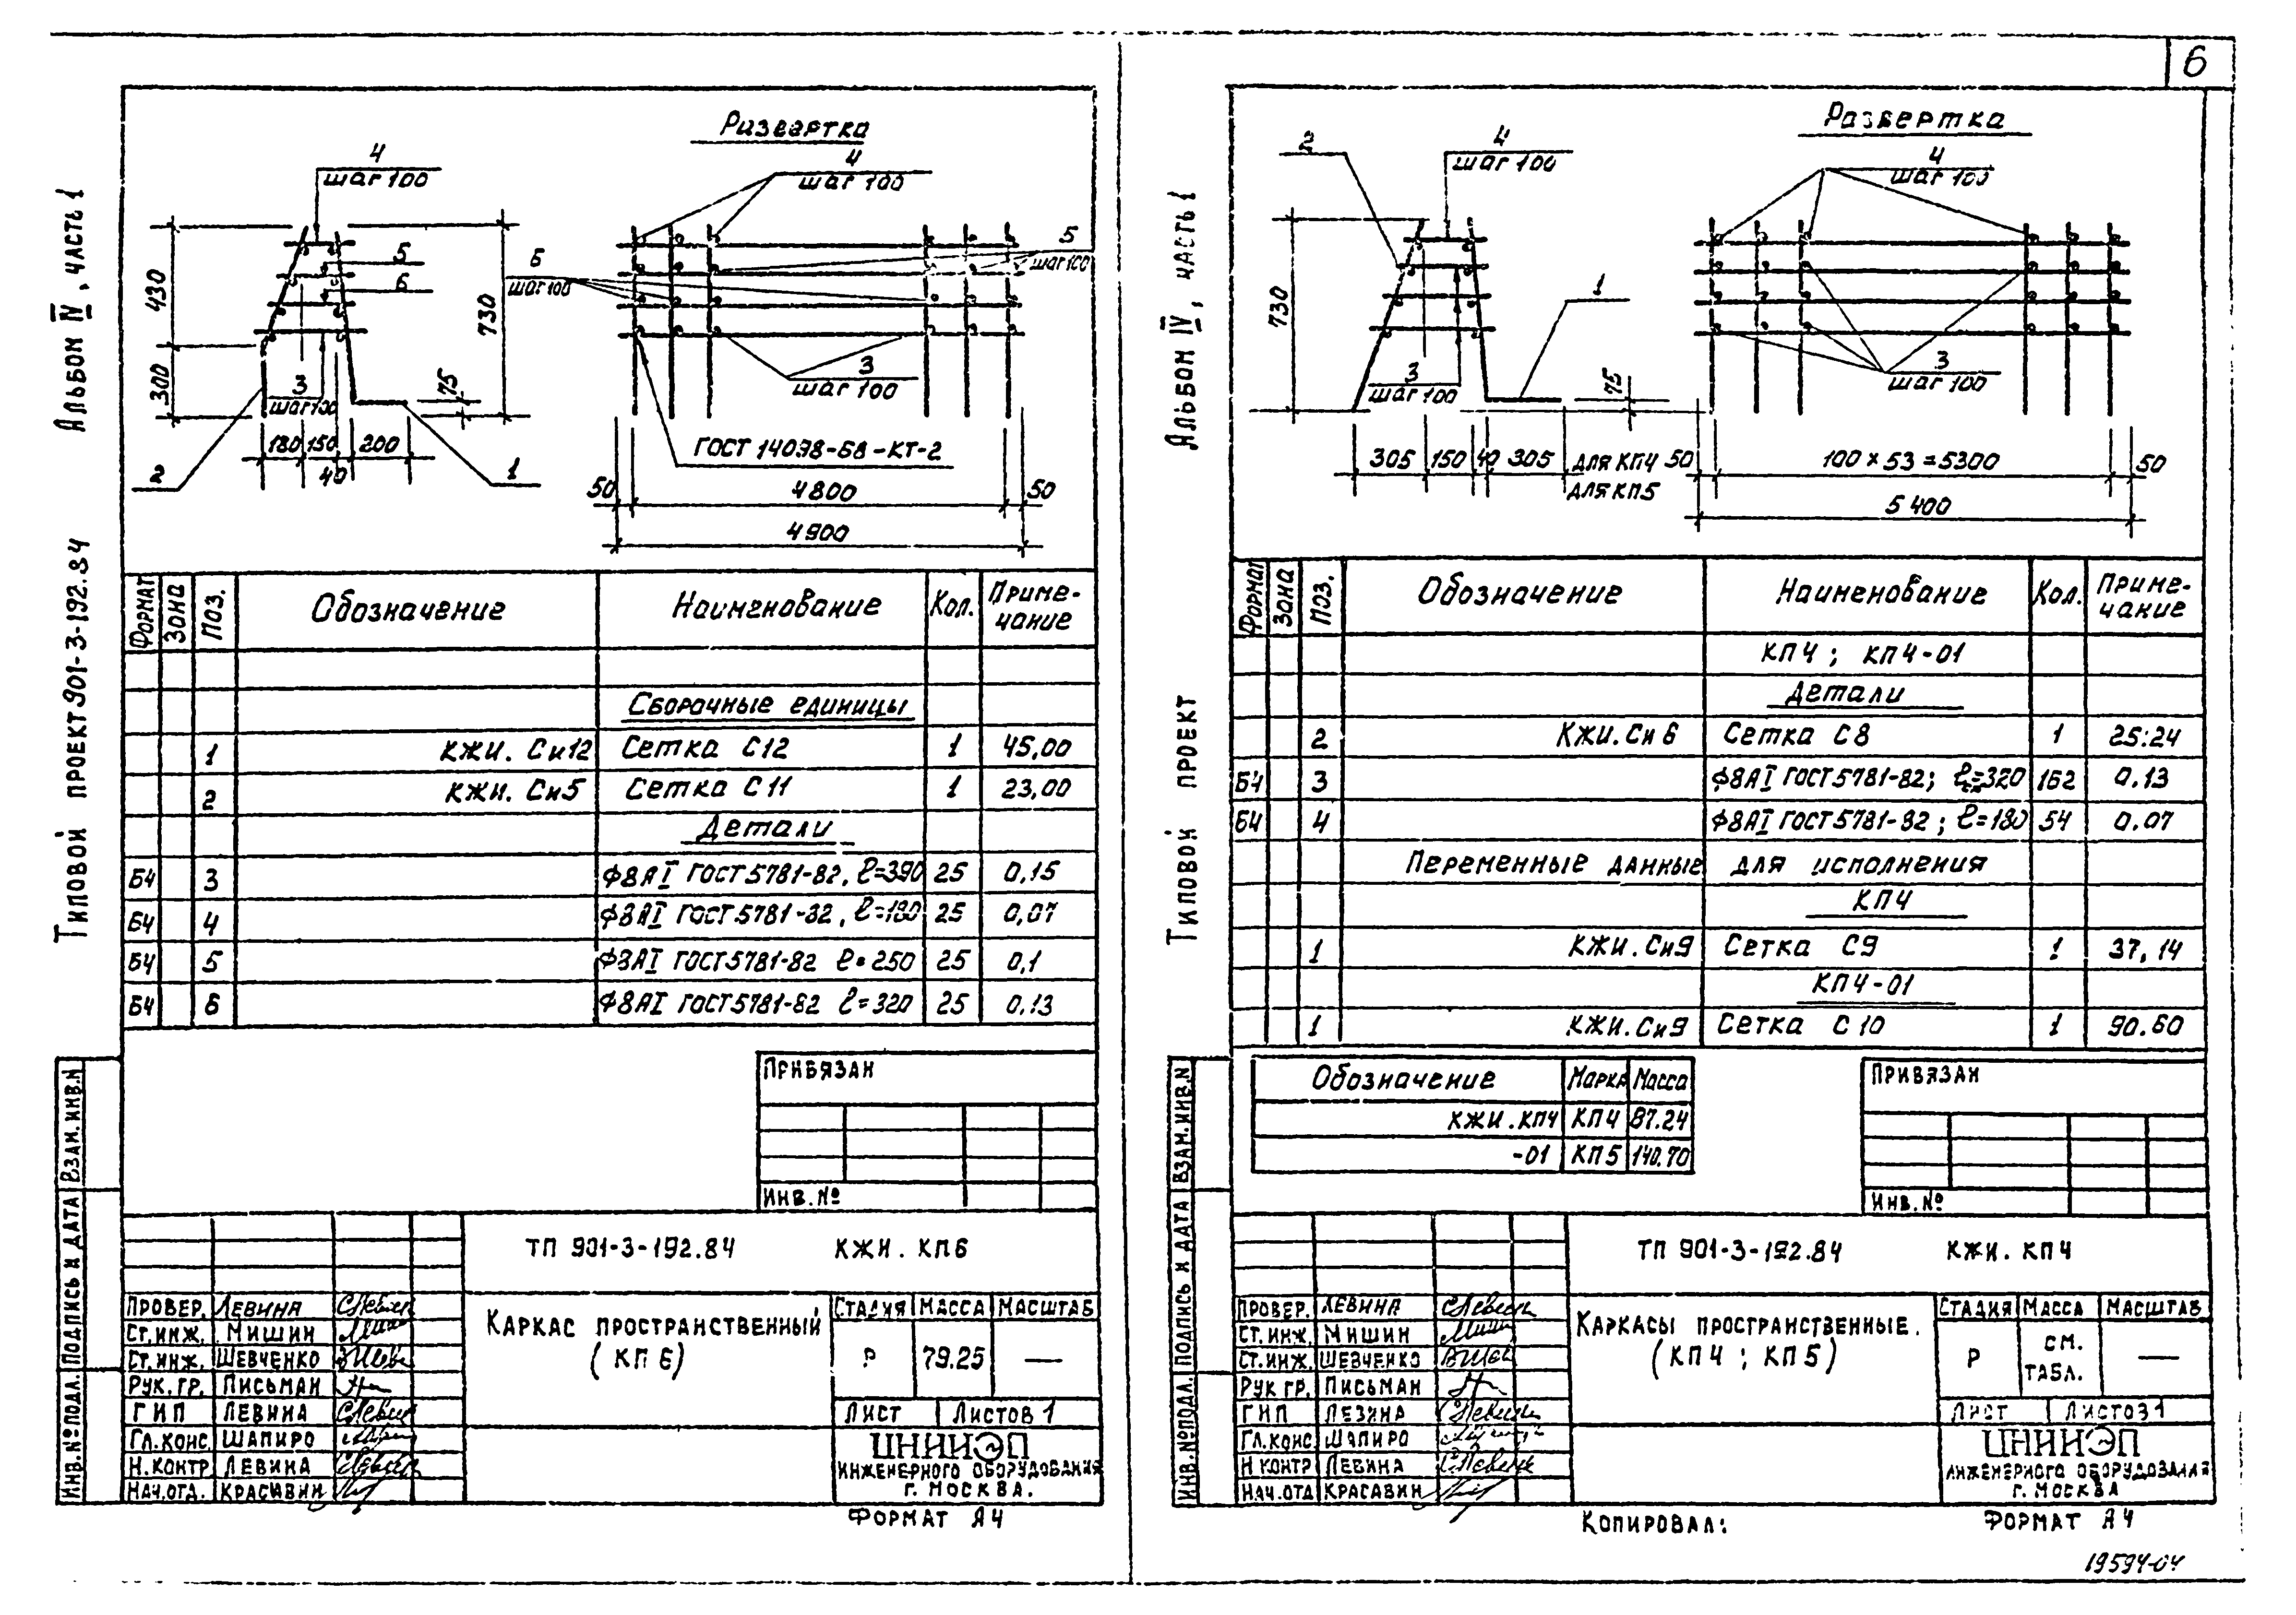 6
Альбом IV, часть 1
Типовой проект 901-3-192.84
Развертка
4
шаг 100
4
шаг 100
5
6
5
шаг 100
6
шаг 100
430
300
730
75
3
шаг 100
3
шаг 100
180 150 200
40
2
1
ГОСТ 14098-68-КТ-2
50 4800 50
4900
Формат Зона Поз. Обозначение Наименование Кол. Примечание
Сборочные единицы
1 КЖИ. Си12 Сетка С12 1 45,00
2 КЖИ. Си5 Сетка С11 1 23,00
Детали
Б4 3 Ф8АI ГОСТ 5781-82, ℓ=390 25 0,15
Б4 4 Ф8АI ГОСТ 5781-82, ℓ=180 25 0,07
Б4 5 Ф8АI ГОСТ 5781-82 ℓ=250 25 0,1
Б4 6 Ф8АI ГОСТ 5781-82 ℓ=320 25 0,13
Привязан
Инв. №
Взам. инв. N
Подпись и дата
Инв. № подл.
ТП 901-3-192.84 КЖИ. КП6
Провер. Левина
Ст. инж. Мишин
Ст. инж. Шевченко
Рук. гр. Письман
ГИП Левина
Гл. конс. Шапиро
Н. контр Левина
Нач. отд. Красавин
Каркас пространственный
(КП 6)
Стадия Масса Масштаб
Р 79.25 —
Лист Листов 1
ЦНИИЭП
инженерного оборудования
г. Москва.
Формат А4
Альбом IV, часть 1
Типовой проект
Развертка
2
4
шаг 100
4
шаг 100
730
1
3
шаг 100
3
шаг 100
75
305 150 40 305 для КП4
для КП5
50 100 × 53 = 5300 50
5400
Формат Зона Поз. Обозначение Наименование Кол. Примечание
КП4; КП4-01
Детали
2 КЖИ. Си 6 Сетка С8 1 25.24
Б4 3 Ф8АI ГОСТ 5781-82; ℓ=320 162 0.13
Б4 4 Ф8АI ГОСТ 5781-82; ℓ=180 54 0.07
Переменные данные для исполнения
КП4
1 КЖИ. Си9 Сетка С9 1 37,14
КП4-01
1 КЖИ. Си9 Сетка С10 1 90.60
Обозначение Марка Масса
КЖИ. КП4 КП4 87.24
-01 КП5 140.70
Привязан
Инв. №
Взам. инв. N
Подпись и дата
Инв. № подл.
ТП 901-3-192.84 КЖИ. КП4
Провер. Левина
Ст. инж. Мишин
Ст. инж. Шевченко
Рук гр. Письман
ГИП Левина
Гл. конс Шапиро
Н контр Левина
Нач. отд Красавин
Каркасы пространственные.
(КП4; КП5)
Стадия Масса Масштаб
Р см. табл. —
Лист Листов 1
ЦНИИЭП
инженерного оборудования
г. Москва
Копировал:
Формат А4
19594-04